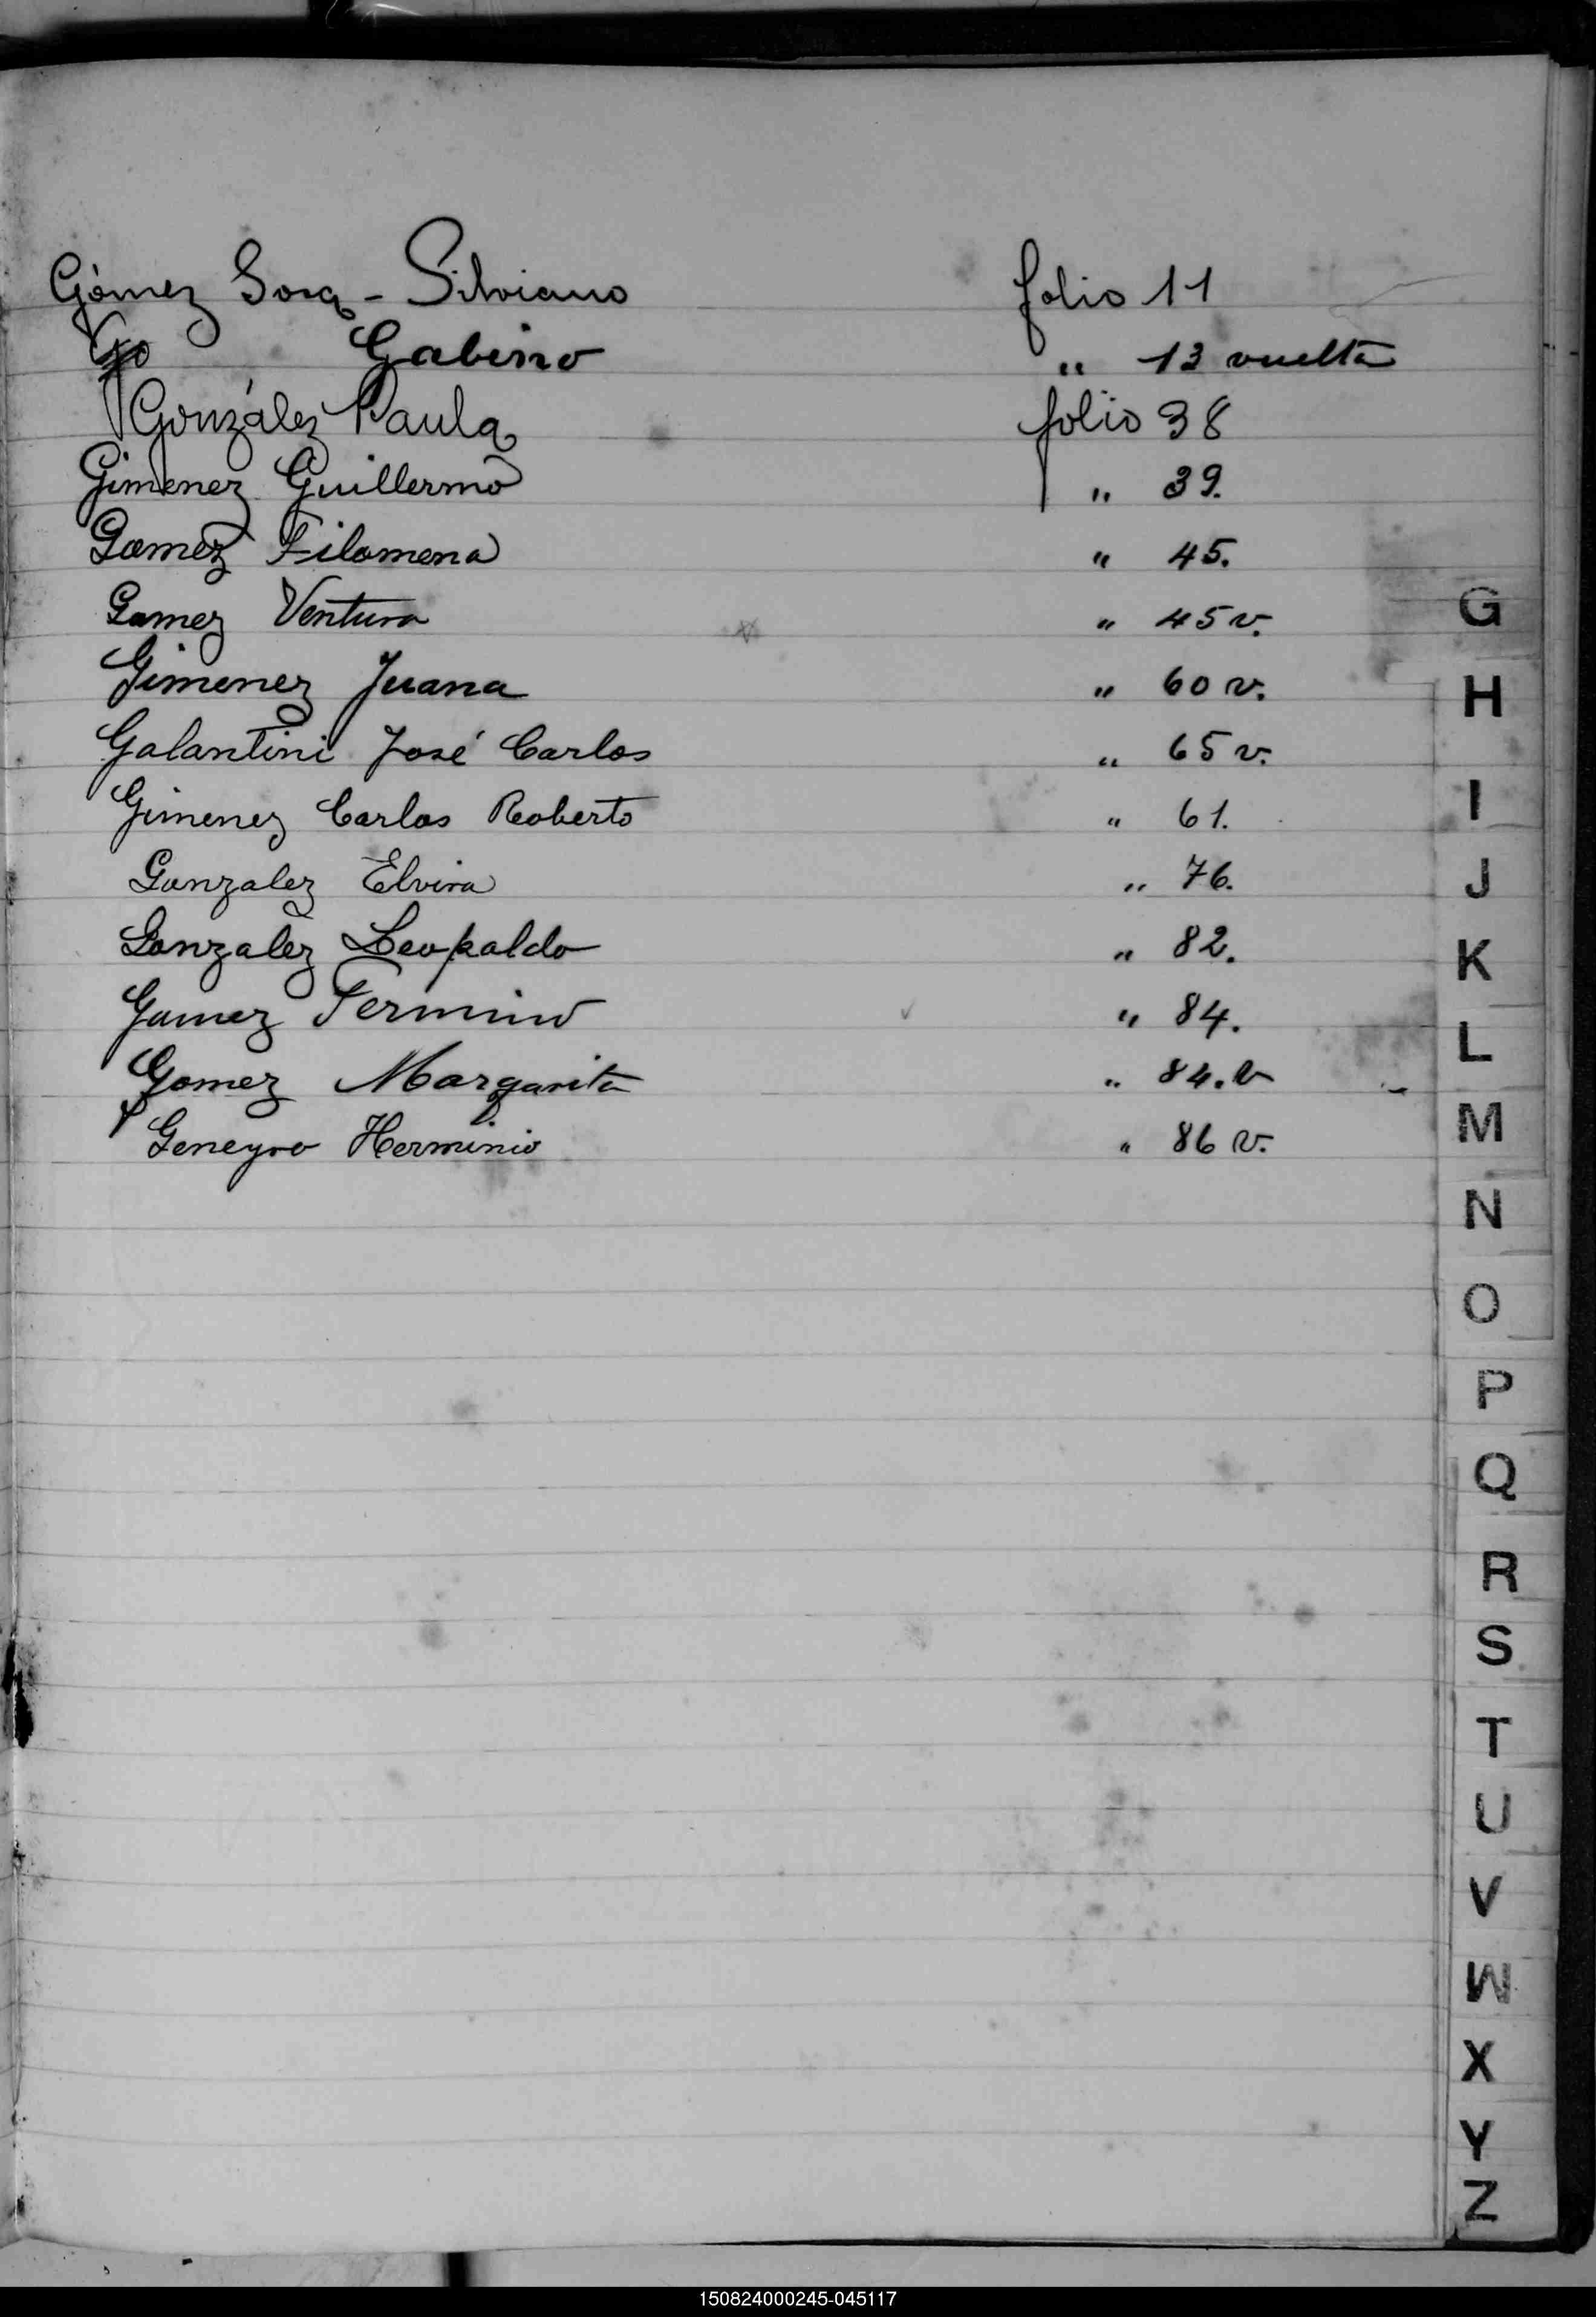 Gómez Sosa - Silviano folio 11
Gabino " 13 vuelta
González Paula folio 38
Gimenez Guillermo " 39.
Gomez Filomena " 45.
Gomez Ventura " 45 v.
Gimenez Juana " 60 v.
Galantini José Carlos " 65 v.
Gimenez Carlos Roberto " 61.
Gonzalez Elvira " 76.
Gonzalez Leopoldo " 82.
Gomez Fermino " 84.
Gomez Margarita " 84. v
Geneyro Herminio " 86 v.
G
H
I
J
K
L
M
N
O
P
Q
R
S
T
U
V
W
X
Y
Z
150824000245-045117